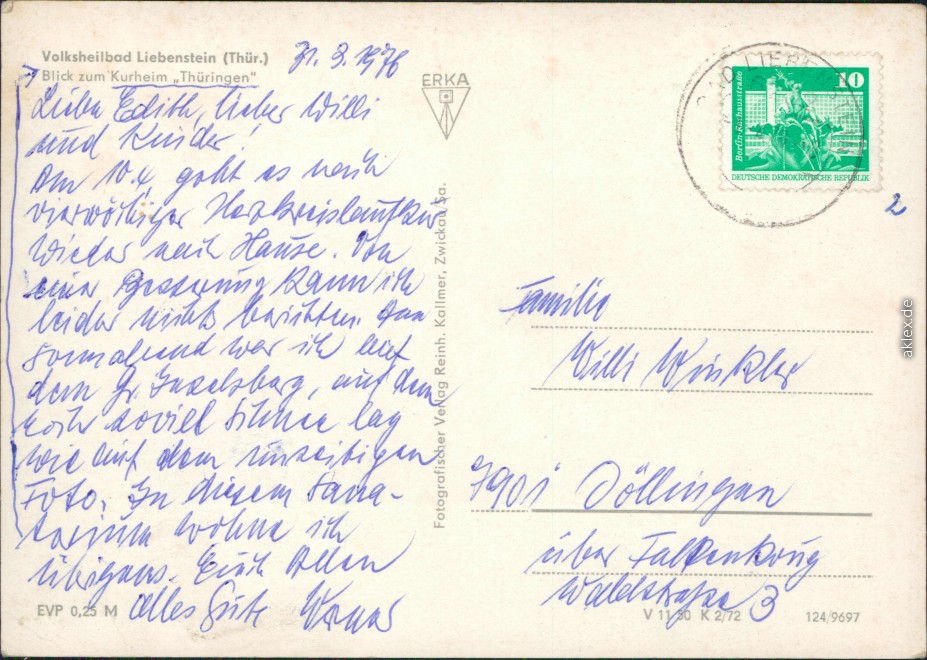 Volksheilbad Liebenstein (Thür.)
31. 3. 1976
Blick zum Kurheim „Thüringen"
Liebe Edith, lieber Willi
und Kinder!
Am 10.4. geht es nach
vierwöchiger Herzkreislaufkur
wieder nach Hause. Von
einer Besserung kann ich
leider nichts berichten. Am
Sonnabend war ich auf
dem Gr. Inselsberg, auf dem
noch soviel Schnee lag
wie auf dem umseitigen
Foto. In diesem Sana-
torium wohne ich
übrigens. Euch Allen
alles Gute Werner
EVP 0,25 M
ERKA
Fotografischer Verlag Reinh. Kallmer, Zwickau Sa.
BAD LIEBE
10
Berlin-Rathausstraße
DEUTSCHE DEMOKRATISCHE REPUBLIK
2
Familie
Willi Winkler
7901 Döllingen
über Falkenberg
Waldstraße 3
V 11 50 K 2/72
124/9697
aklex.de